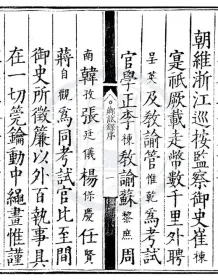 朝維浙江巡按監察御史崔棟
寔祗厥載走幣數千里外聘
呈英及教諭管惟乾為考試
官學正李棟教諭蘇黎庶周
試錄序
南韓孜張廷儀楊作慶任賢
蔣自觀為同考試官比至間
御史所徵簾以外百執事具
在一切筦鑰動中繩畫惟謹